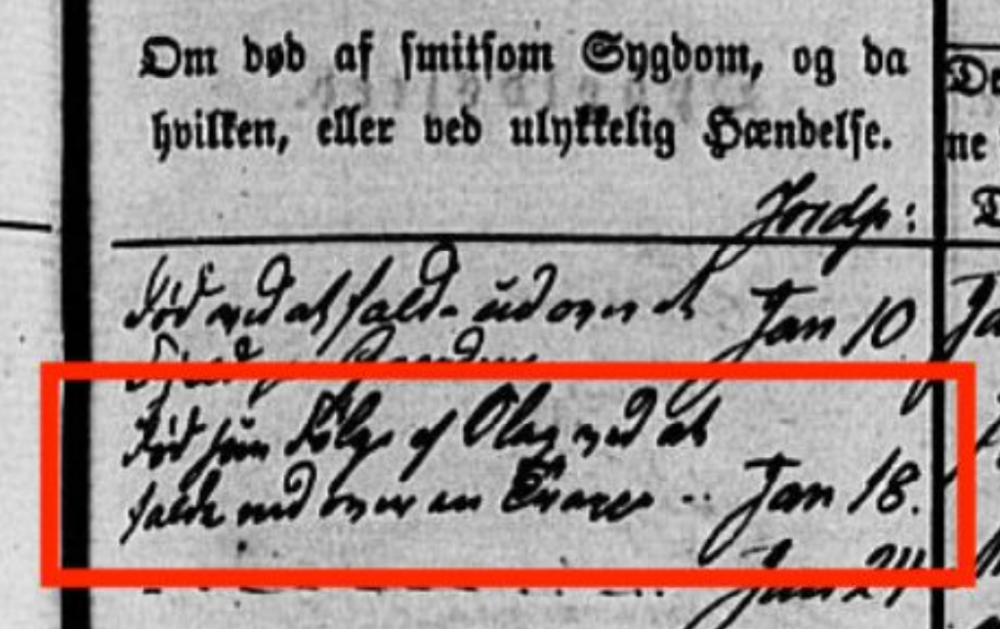 Om død af smitsom Sygdom, og da
hvilken, eller ved ulykkelig Hændelse.
Jordp:
Død ved at falde ud over et Jan 10
Død som Følge af Slag ved at
falde ned over en Jan 18.
Jan 24